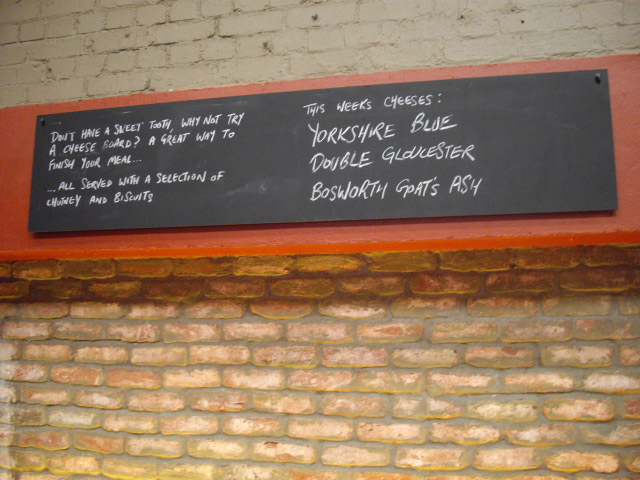 DON'T HAVE A SWEET TOOTH, WHY NOT TRY
A CHEESE BOARD? A GREAT WAY TO
FINISH YOUR MEAL...
...ALL SERVED WITH A SELECTION OF
CHUTNEY AND BISCUITS
THIS WEEKS CHEESES:
YORKSHIRE BLUE
DOUBLE GLOUCESTER
BOSWORTH GOAT'S ASH